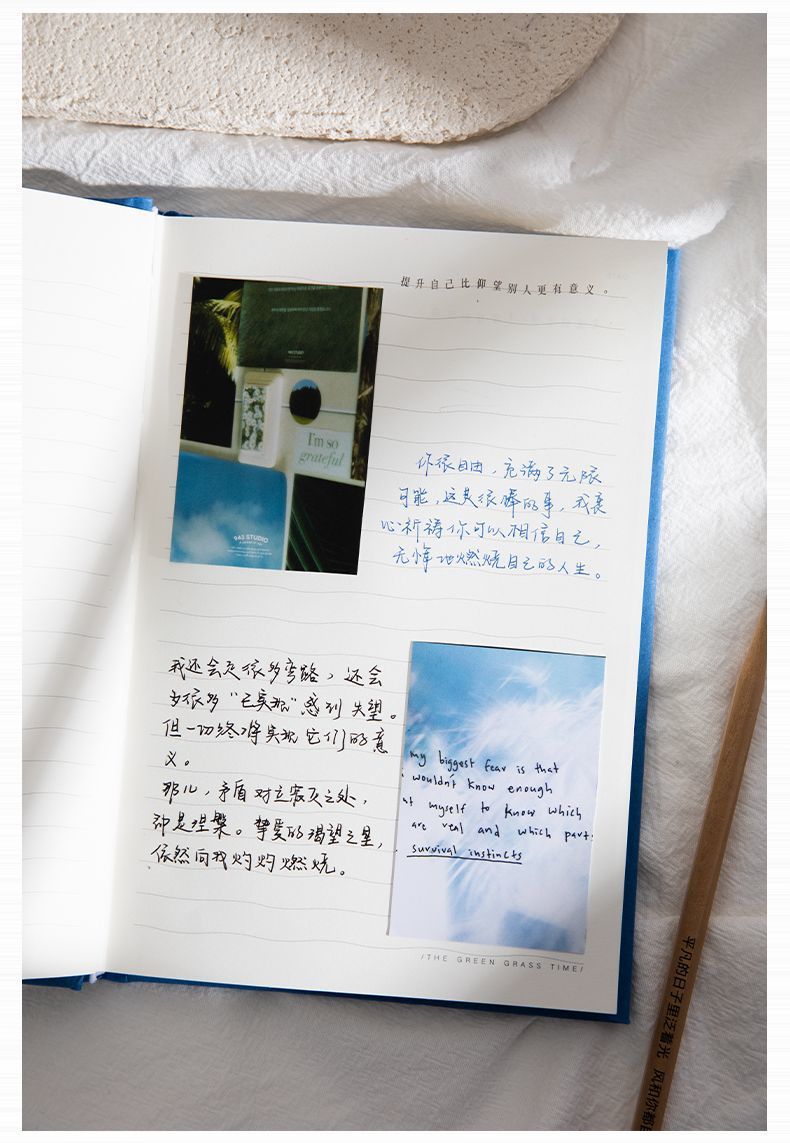 提升自己比仰望别人更有意义。
943 STUDIO
I'm so
grateful
943 STUDIO
你很自由，充满了无限
可能，这是很棒的事，我衷
心祈祷你可以相信自己，
无悔地燃烧自己的人生。
我还会走很多弯路，还会
为很多“已实现”感到失望。
但一切终将实现它们的意
义。
那儿，矛盾对立寂灭之处，
即是涅槃。挚爱的渴望之星，
依然向我灼灼燃烧。
my biggest fear is that
wouldn't know enough
myself to know which
are real and which part
survival instincts
/THE GREEN GRASS TIME/
平凡的日子里泛着光 风和你都